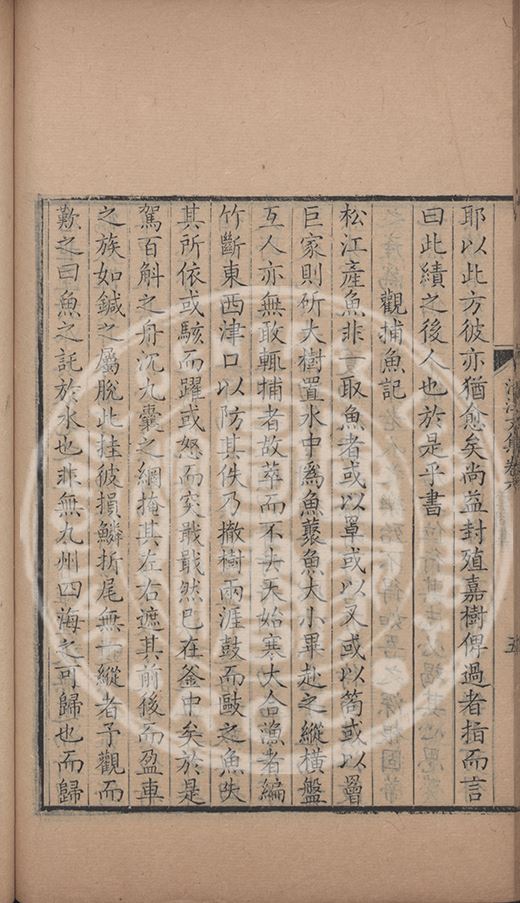 耶以此方彼亦猶愈矣尚益封殖嘉樹俾過者指而言
曰此績之後人也於是乎書
觀捕魚記
松江產魚非一取魚者或以罩或以叉或以笱或以罾
巨家則斫大樹置水中爲魚藂魚大小畢赴之縱橫盤
互人亦無敢輒捕者故萃而不去天始寒大合漁者編
竹斷東西津口以防其佚乃撤樹兩涯鼓而敺之魚失
其所依或駭而躍或怒而突戢戢然已在釜中矣於是
駕百斛之舟沉九囊之網掩其左右遮其前後而盈車
之族如鍼之屬脫此挂彼損鱗折尾無一縱者予觀而
歎之曰魚之託於水也非無九州四海之可歸也而歸
江文集卷
五